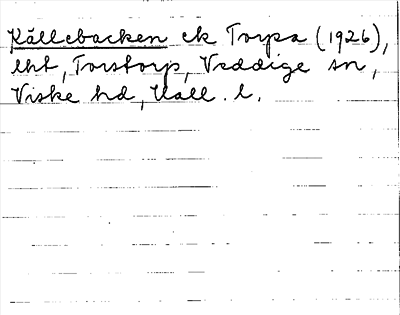 Källebacken ek Torpa (1926),
lht, Torstorp, Veddige sn,
Viske hd, Hall. l.